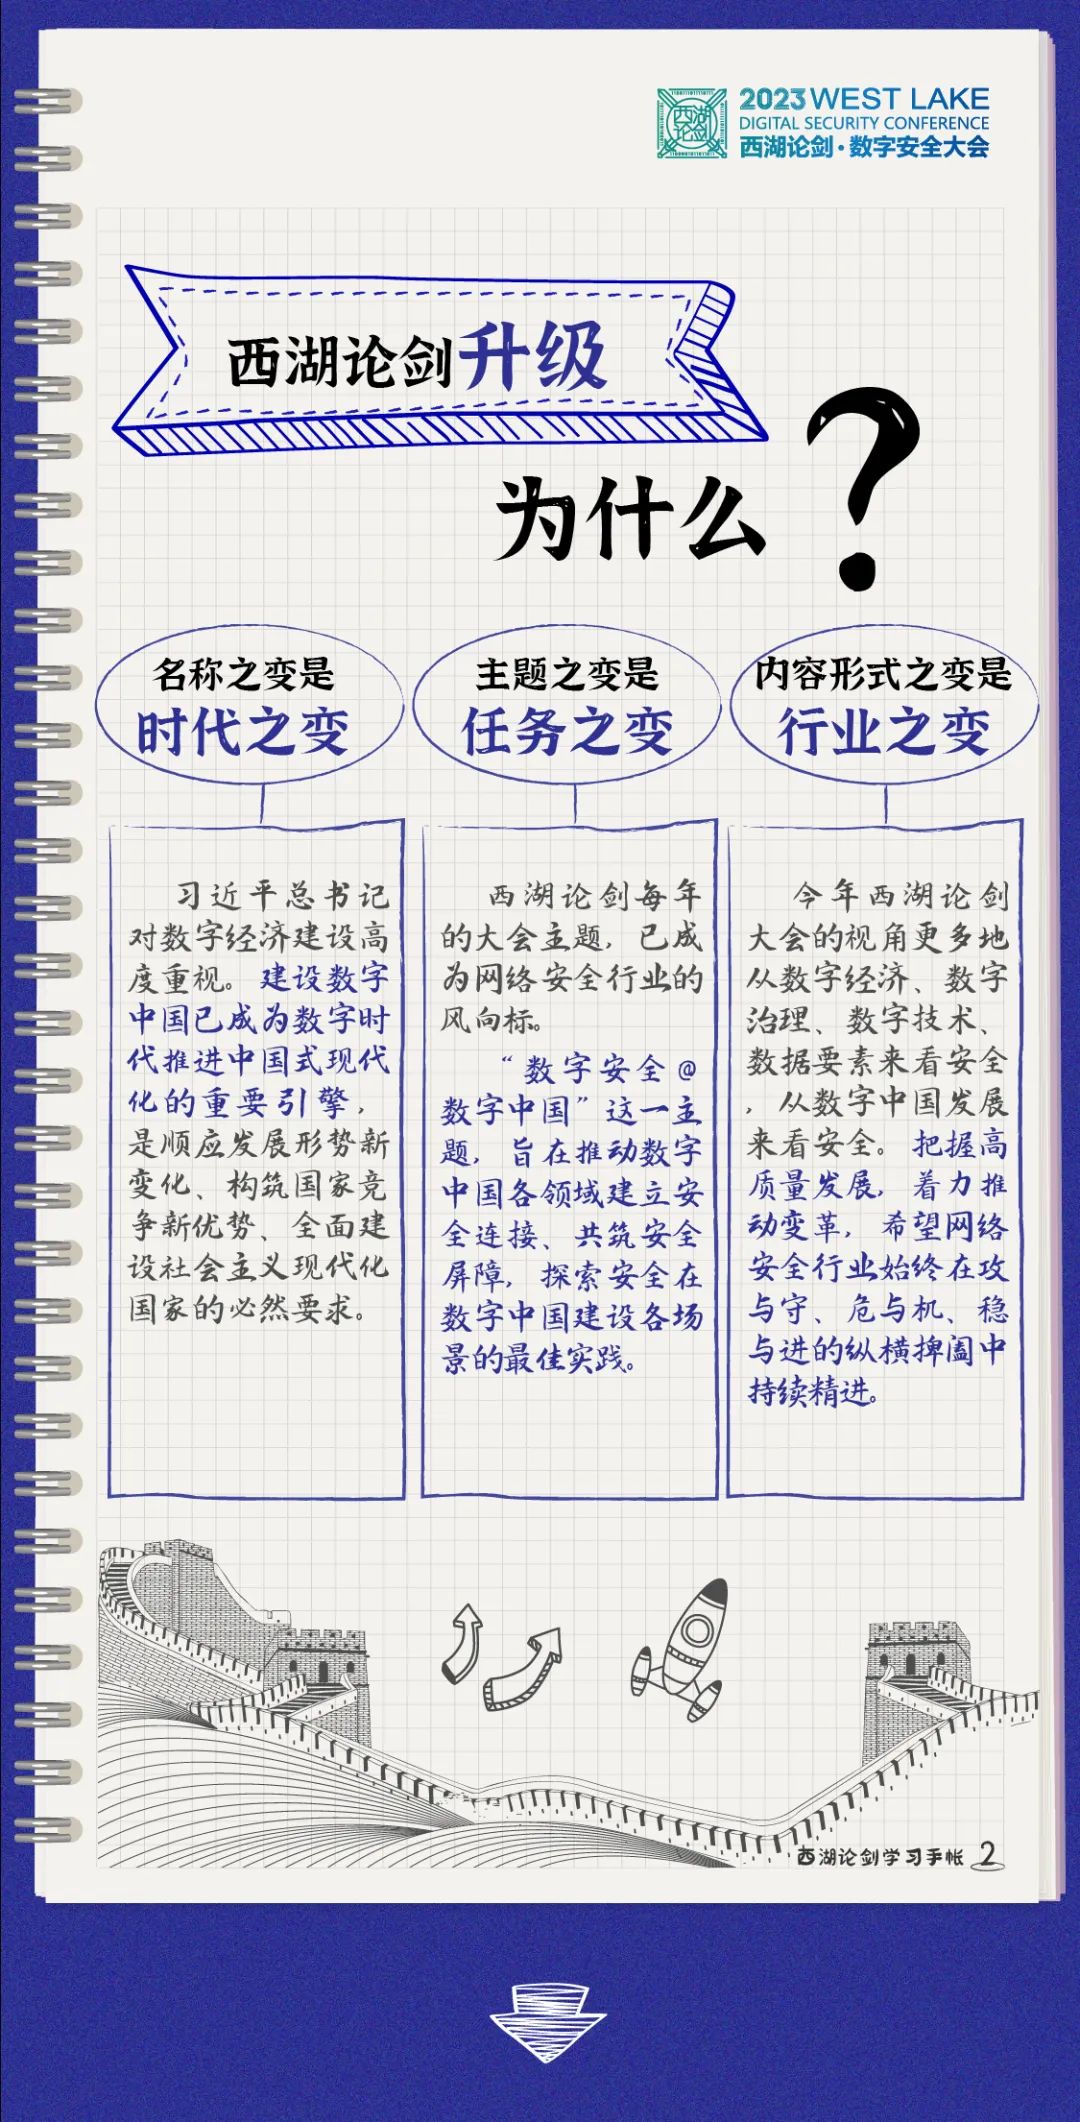 西湖论剑
2023 WEST LAKE
DIGITAL SECURITY CONFERENCE
西湖论剑·数字安全大会
西湖论剑升级
为什么?
名称之变是
时代之变
习近平总书记
对数字经济建设高
度重视。建设数字
中国已成为数字时
代推进中国式现代
化的重要引擎,
是顺应发展形势新
变化、构筑国家竞
争新优势、全面建
设社会主义现代化
国家的必然要求。
主题之变是
任务之变
西湖论剑每年
的大会主题,已成
为网络安全行业的
风向标。
“数字安全@
数字中国”这一主
题,旨在推动数字
中国各领域建立安
全连接、共筑安全
屏障,探索安全在
数字中国建设各场
景的最佳实践。
内容形式之变是
行业之变
今年西湖论剑
大会的视角更多地
从数字经济、数字
治理、数字技术、
数据要素来看安全
,从数字中国发展
来看安全。把握高
质量发展,着力推
动变革,希望网络
安全行业始终在攻
与守、危与机、稳
与进的纵横捭阖中
持续精进。
西湖论剑学习手帐 2